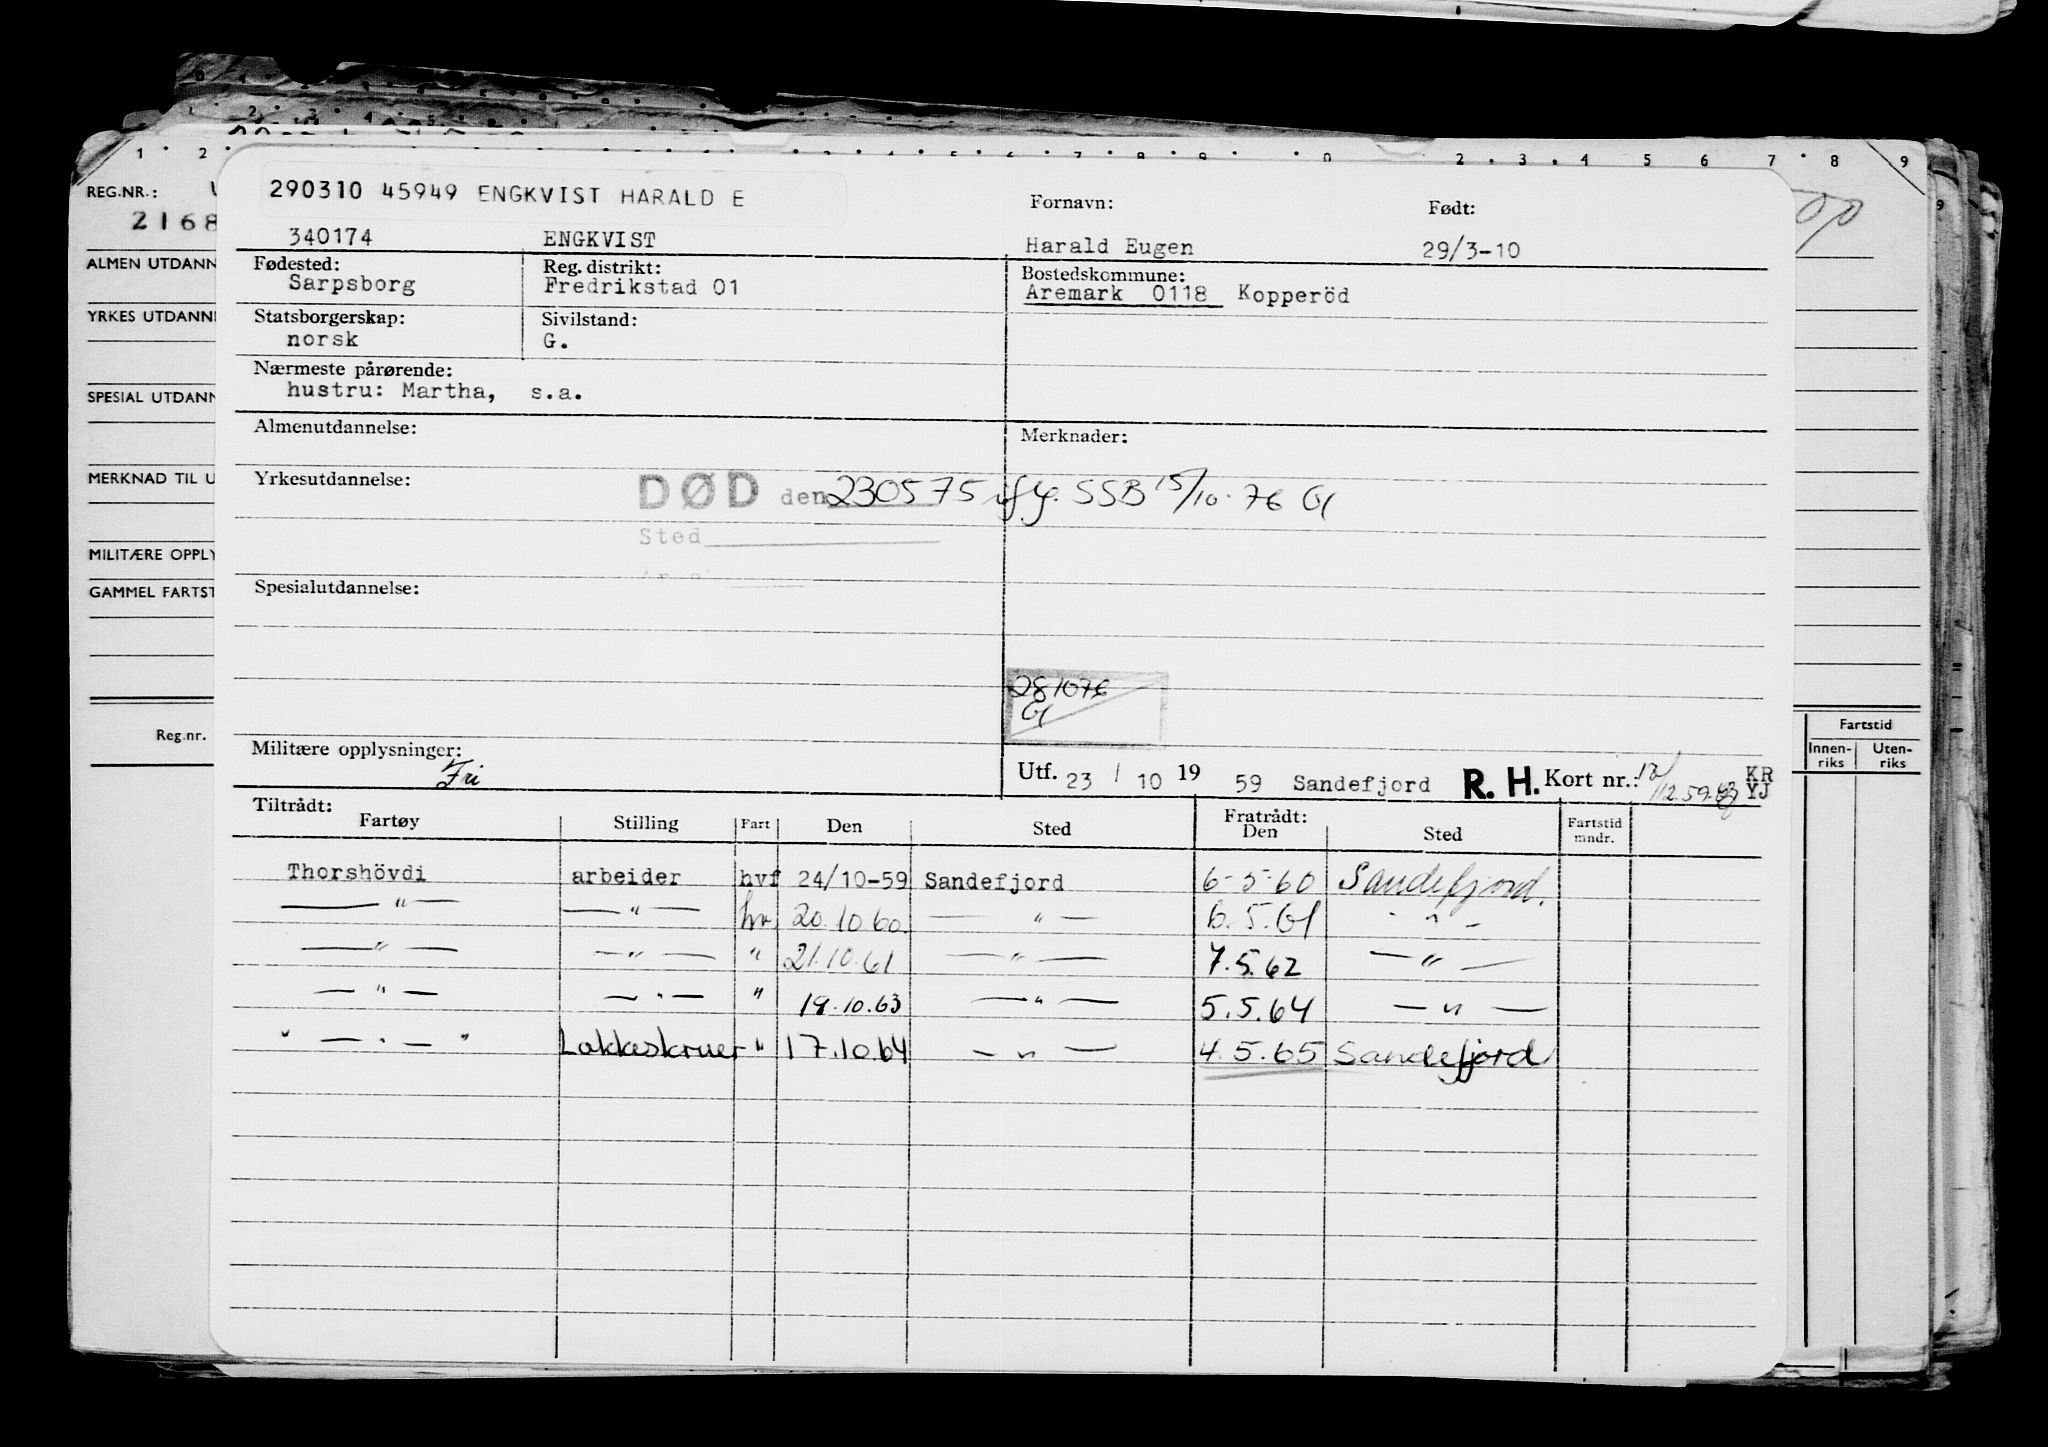 1 2 3 4 5 6 7 8 9 0 2 3 4 5 6 7 8 9
REG.NR.:
2168
ALMEN UTDANN
YRKES UTDANNE
SPESIAL UTDANN
MERKNAD TIL U
MILITÆRE OPPLY
GAMMEL FARTST
Reg.nr.
Fartstid
Innen-riks Uten-riks
290310 45949 ENGKVIST HARALD E
Fornavn: Født:
340174 ENGKVIST Harald Eugen 29/3-10
Fødested: Reg. distrikt: Bostedskommune:
Sarpsborg Fredrikstad 01 Aremark 0118 Kopperöd
Statsborgerskap: Sivilstand:
norsk G.
Nærmeste pårørende:
hustru: Martha, s.a.
Almenutdannelse: Merknader:
Yrkesutdannelse:
DØD den 230575 iflg. SSB 15/10-76 Gl
Sted
Spesialutdannelse:
281076
Gl
Militære opplysninger:
Fri
Utf. 23 / 10 19 59 Sandefjord R. H. Kort nr.: KR
YJ
Tiltrådt: Fratrådt:
Fartøy Stilling Fart Den Sted Den Sted Fartstid mndr.
Thorshövdi arbeider hvf 24/10-59 Sandefjord 6-5-60 Sandefjord.
—"— —"— hv. 20.10.60 — " — 6.5.61 - " -
—"— —"— " 21.10.61 —"— 7.5.62 —"—
—"— —"— " 19.10.63 —"— 5.5.64 —"—
" — " — " Lakkeskruer " 17.10.64 —"— 4.5.65 Sandefjord